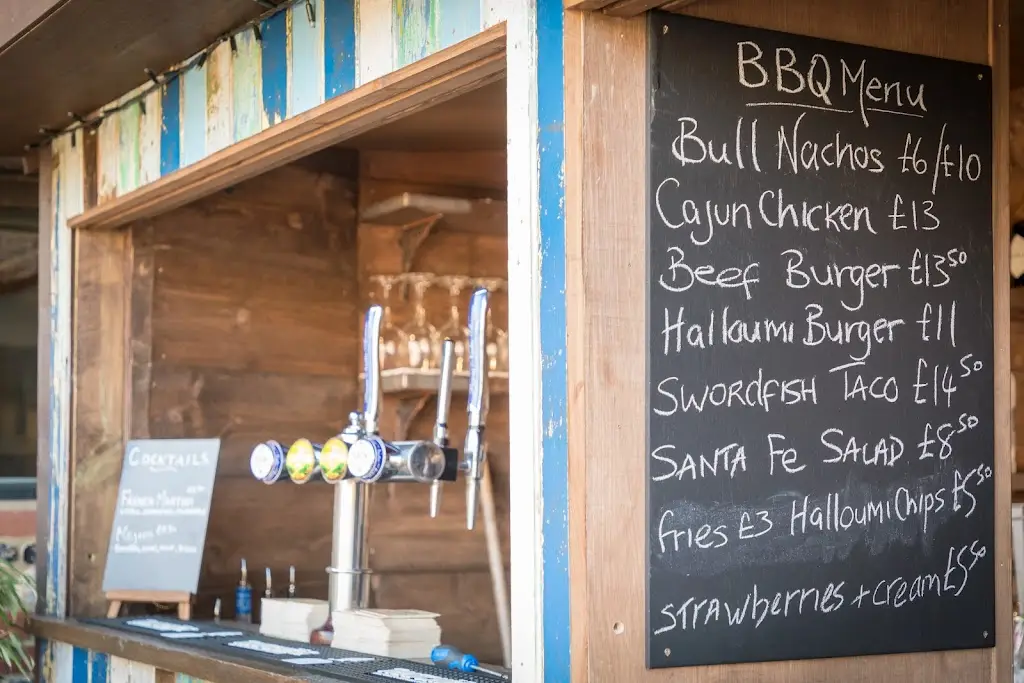 BBQ Menu
Bull Nachos £6/£10
Cajun Chicken £13
Beef Burger £13⁵⁰
Halloumi Burger £11
SWORDFISH TACO £14⁵⁰
SANTA Fe SALAD £8⁵⁰
fries £3 Halloumi Chips £5⁵⁰
STRAWberries + cream £5⁵⁰
COCKTAILS